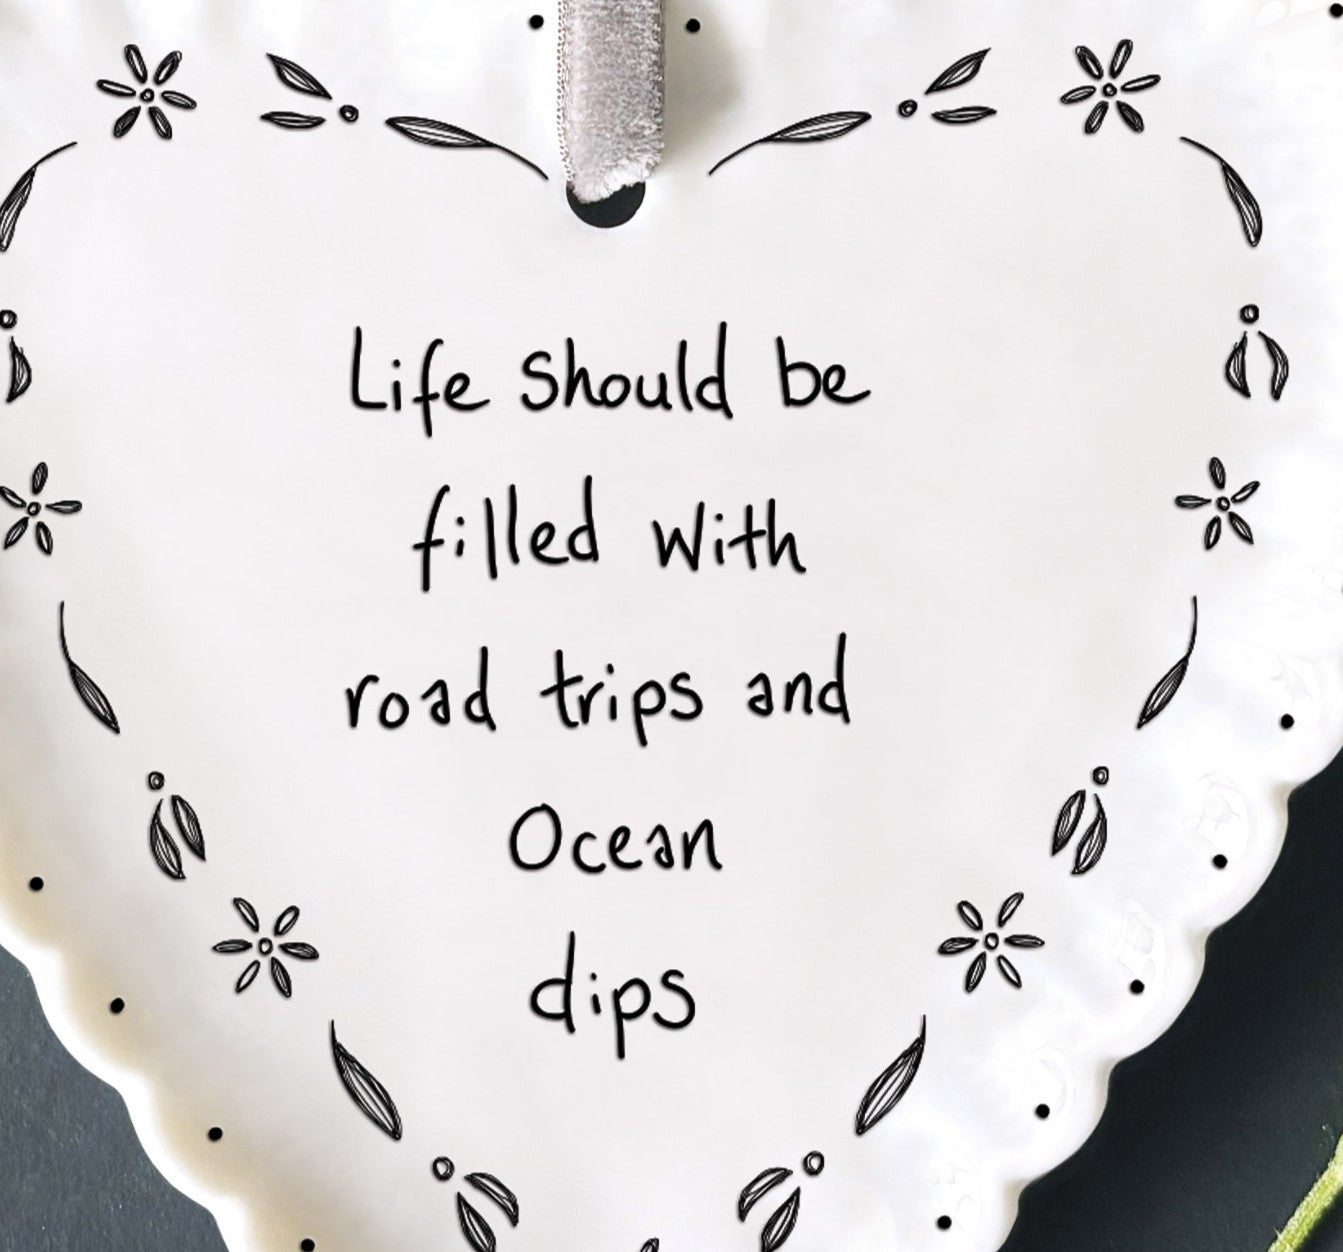 Life should be
filled with
road trips and
Ocean
dips